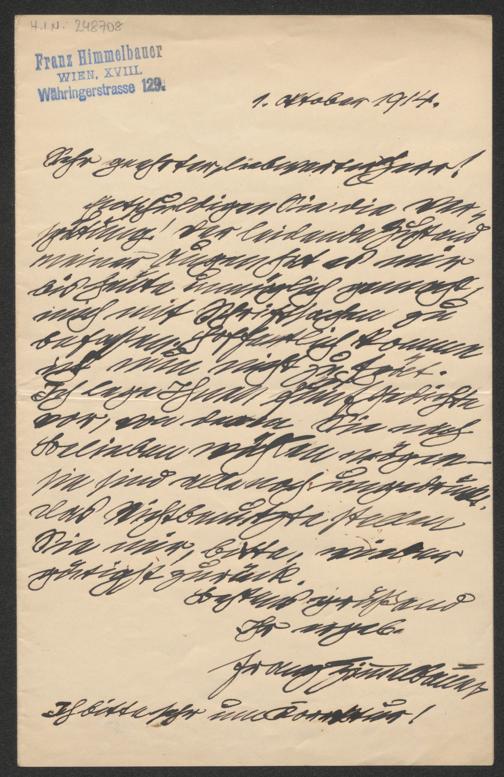 H.I.N. 248708
Franz Himmelbauer
WIEN, XVIII.
Währingerstrasse 129.
1. Oktober 1914.
Sehr geehrter, liebwerter Herr!
Entschuldigen Sie die Ver-
spätung! Der leidende Zustand
meiner Augen hat es mir
bis heute unmöglich gemacht,
mich mit Schriftsachen zu
befassen. Hoffentlich komme
ich nun nicht zu spät.
Ich lege Ihnen fünf Gedichte
vor, von denen Sie nach
Belieben wählen mögen –
sie sind alle noch ungedruckt.
Das Nichtbenützte stellen
Sie mir, bitte, wieder
gütigst zurück.
Bestens grüßend
Ihr ergeb.
Franz Himmelbauer
Ich bitte sehr um Korrektur!